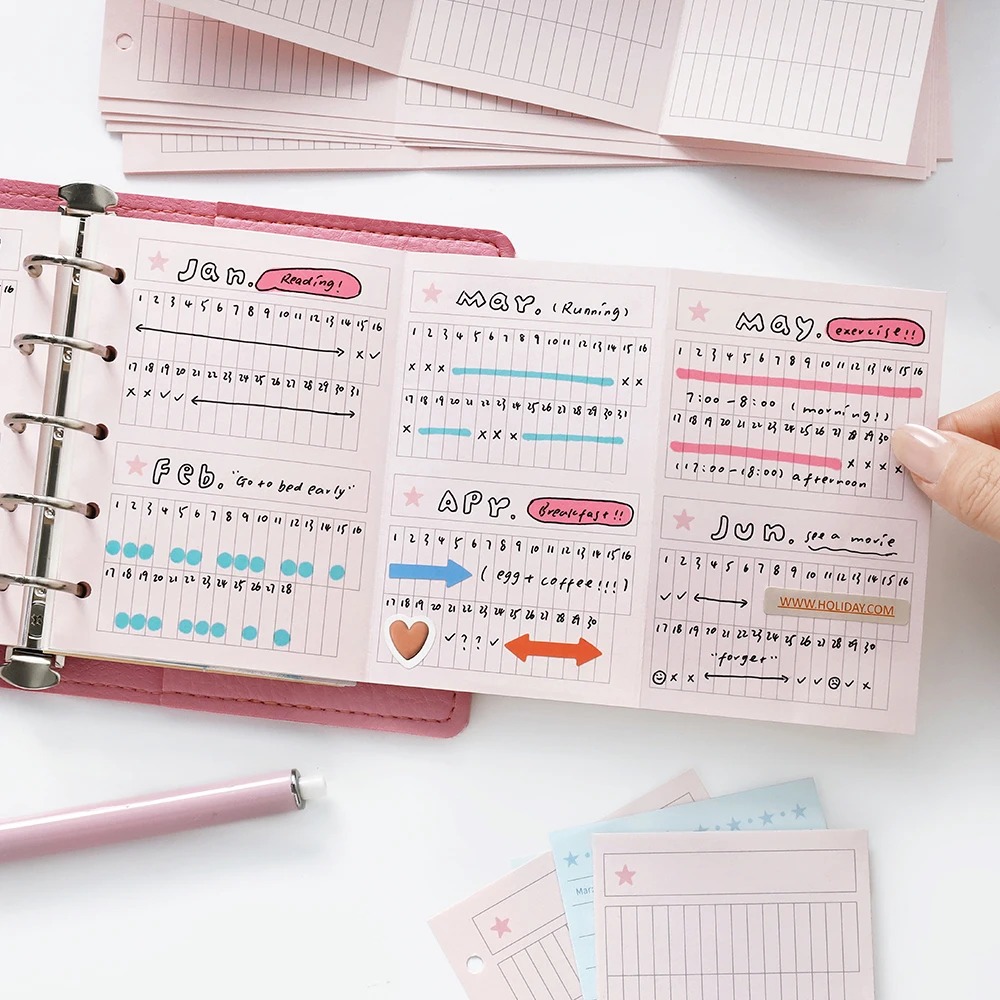 16
Jan. Reading!
1 2 3 4 5 6 7 8 9 10 11 12 13 14 15 16
x ✓
17 18 19 20 21 22 23 24 25 26 27 28 29 30 31
x x ✓ ✓
Feb. "Go to bed early"
1 2 3 4 5 6 7 8 9 10 11 12 13 14 15 16
17 18 19 20 21 22 23 24 25 26 27 28
MAR. (Running)
1 2 3 4 5 6 7 8 9 10 11 12 13 14 15 16
x x x x x
17 18 19 20 21 22 23 24 25 26 27 28 29 30 31
x x x x
APR. Breakfast!!
1 2 3 4 5 6 7 8 9 10 11 12 13 14 15 16
(egg + coffee!!!)
17 18 19 20 21 22 23 24 25 26 27 28 29 30
✓ ? ? ✓
MAY. exercise!!
1 2 3 4 5 6 7 8 9 10 11 12 13 14 15 16
7:00 - 8:00 (morning!)
17 18 19 20 21 22 23 24 25 26 27 28 29 30
x x x x
(17:00 - 18:00) afternoon
Jun. see a movie
1 2 3 4 5 6 7 8 9 10 11 12 13 14 15 16
✓ ✓
WWW.HOLIDAY.COM
17 18 19 20 21 22 23 24 25 26 27 28 29 30
"forget"
x x ✓ ✓ ✓ x